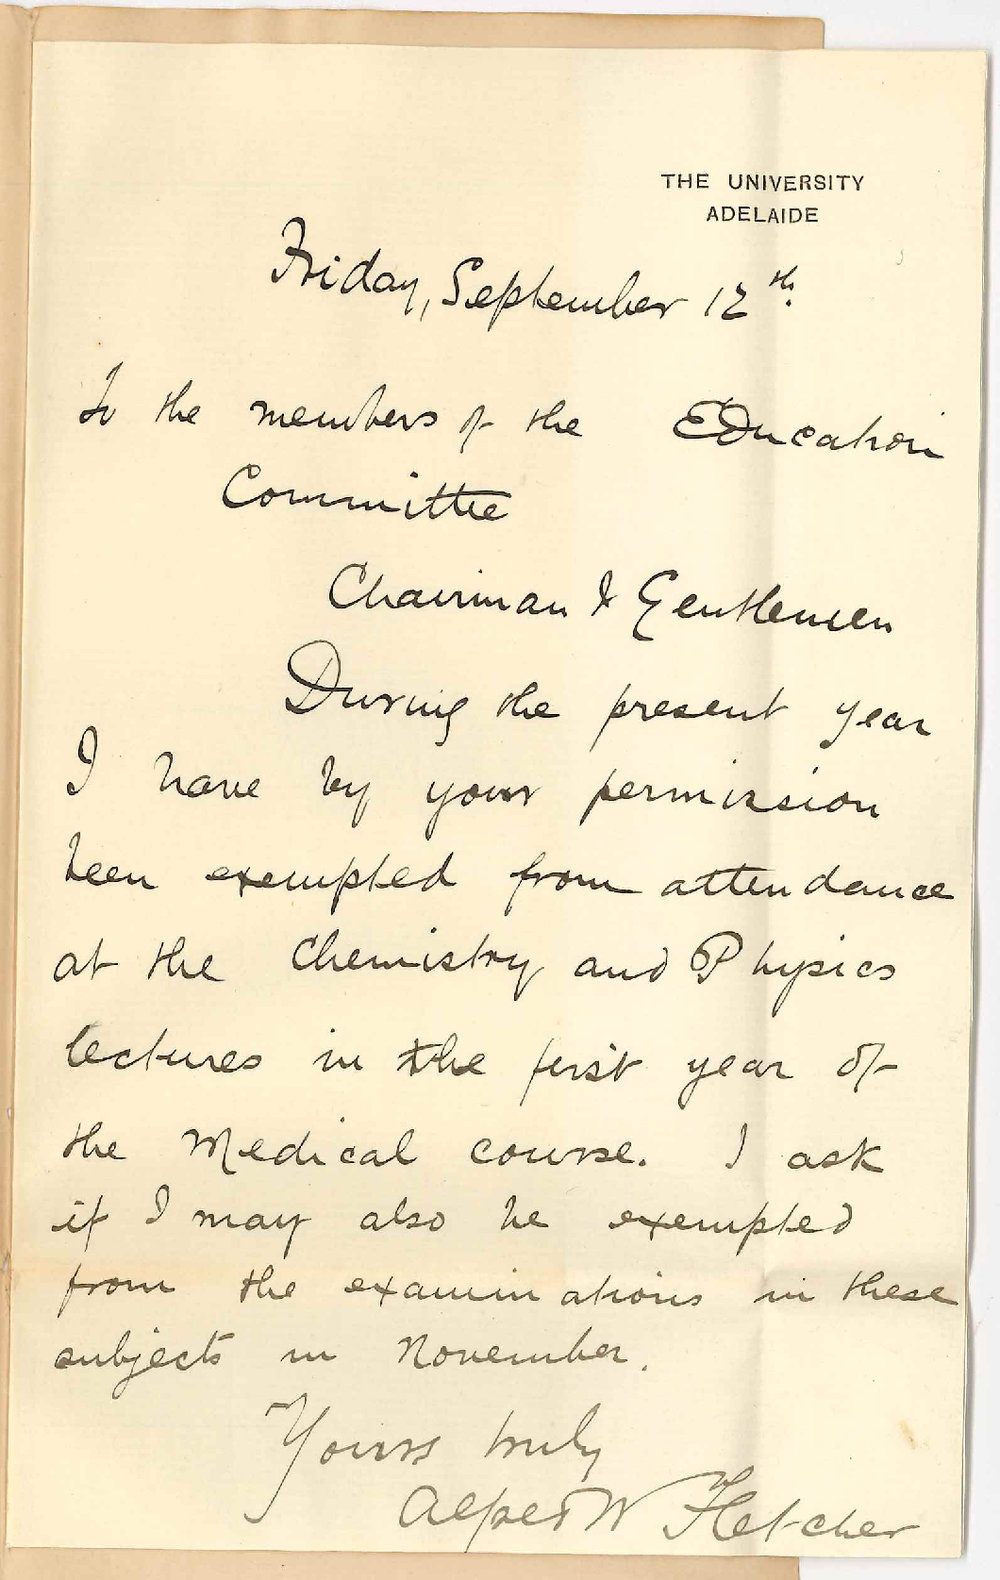 THE UNIVERSITY
ADELAIDE
Friday, September 12th.
To the members of the Education
Committee
Chairman & Gentlemen
During the present year
I have by your permission
been exempted from attendance
at the Chemistry and Physics
lectures in the first year of
the Medical course. I ask
if I may also be exempted
from the examinations in these
subjects in November.
Yours truly
Alfred W Fletcher